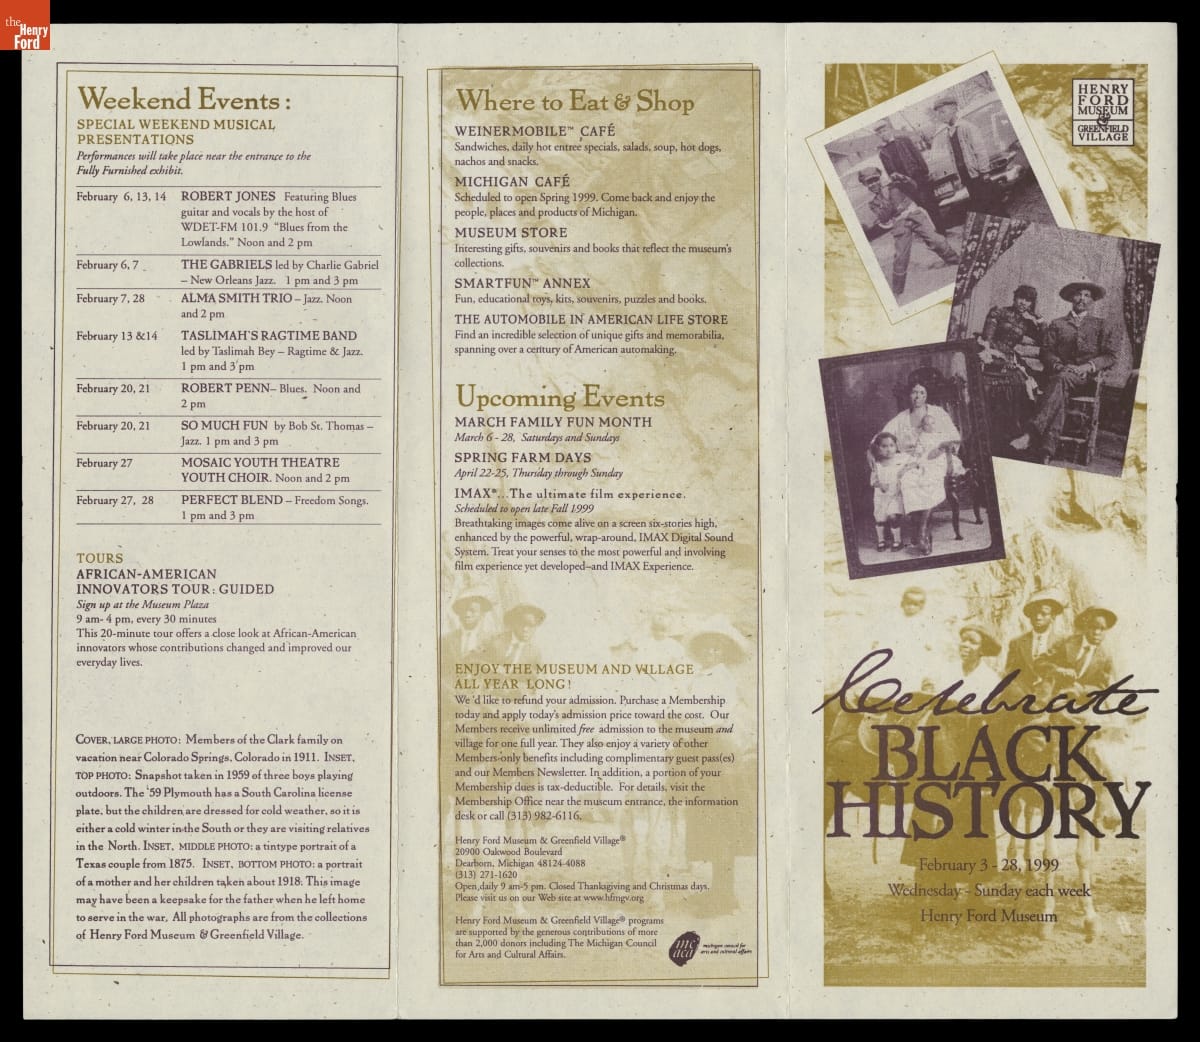 the
Henry
Ford
Weekend Events :
SPECIAL WEEKEND MUSICAL
PRESENTATIONS
Performances will take place near the entrance to the
Fully Furnished exhibit.
February 6, 13, 14 ROBERT JONES Featuring Blues
guitar and vocals by the host of
WDET-FM 101.9 "Blues from the
Lowlands." Noon and 2 pm
February 6, 7 THE GABRIELS led by Charlie Gabriel
– New Orleans Jazz. 1 pm and 3 pm
February 7, 28 ALMA SMITH TRIO – Jazz. Noon
and 2 pm
February 13 &14 TASLIMAH'S RAGTIME BAND
led by Taslimah Bey – Ragtime & Jazz.
1 pm and 3 pm
February 20, 21 ROBERT PENN– Blues. Noon and
2 pm
February 20, 21 SO MUCH FUN by Bob St. Thomas –
Jazz. 1 pm and 3 pm
February 27 MOSAIC YOUTH THEATRE
YOUTH CHOIR. Noon and 2 pm
February 27, 28 PERFECT BLEND – Freedom Songs.
1 pm and 3 pm
TOURS
AFRICAN-AMERICAN
INNOVATORS TOUR: GUIDED
Sign up at the Museum Plaza
9 am- 4 pm, every 30 minutes
This 20-minute tour offers a close look at African-American
innovators whose contributions changed and improved our
everyday lives.
COVER, LARGE PHOTO: Members of the Clark family on
vacation near Colorado Springs, Colorado in 1911. INSET,
TOP PHOTO: Snapshot taken in 1959 of three boys playing
outdoors. The '59 Plymouth has a South Carolina license
plate, but the children are dressed for cold weather, so it is
either a cold winter in the South or they are visiting relatives
in the North. INSET, MIDDLE PHOTO: a tintype portrait of a
Texas couple from 1875. INSET, BOTTOM PHOTO: a portrait
of a mother and her children taken about 1918. This image
may have been a keepsake for the father when he left home
to serve in the war. All photographs are from the collections
of Henry Ford Museum & Greenfield Village.
Where to Eat & Shop
WEINERMOBILE™ CAFÉ
Sandwiches, daily hot entree specials, salads, soup, hot dogs,
nachos and snacks.
MICHIGAN CAFÉ
Scheduled to open Spring 1999. Come back and enjoy the
people, places and products of Michigan.
MUSEUM STORE
Interesting gifts, souvenirs and books that reflect the museum's
collections.
SMARTFUN™ ANNEX
Fun, educational toys, kits, souvenirs, puzzles and books.
THE AUTOMOBILE IN AMERICAN LIFE STORE
Find an incredible selection of unique gifts and memorabilia,
spanning over a century of American automaking.
Upcoming Events
MARCH FAMILY FUN MONTH
March 6 - 28, Saturdays and Sundays
SPRING FARM DAYS
April 22-25, Thursday through Sunday
IMAX®...The ultimate film experience.
Scheduled to open late Fall 1999
Breathtaking images come alive on a screen six-stories high,
enhanced by the powerful, wrap-around, IMAX Digital Sound
System. Treat your senses to the most powerful and involving
film experience yet developed–and IMAX Experience.
ENJOY THE MUSEUM AND VILLAGE
ALL YEAR LONG!
We'd like to refund your admission. Purchase a Membership
today and apply today's admission price toward the cost. Our
Members receive unlimited free admission to the museum and
village for one full year. They also enjoy a variety of other
Members-only benefits including complimentary guest pass(es)
and our Members Newsletter. In addition, a portion of your
Membership dues is tax-deductible. For details, visit the
Membership Office near the museum entrance, the information
desk or call (313) 982-6116.
Henry Ford Museum & Greenfield Village®
20900 Oakwood Boulevard
Dearborn, Michigan 48124-4088
(313) 271-1620
Open daily 9 am-5 pm. Closed Thanksgiving and Christmas days.
Please visit us on our Web site at www.hfmgv.org
Henry Ford Museum & Greenfield Village® programs
are supported by the generous contributions of more
than 2,000 donors including The Michigan Council
for Arts and Cultural Affairs.
mc
aca
michigan council for
arts and cultural affairs
HENRY
FORD
MUSEUM
&
GREENFIELD
VILLAGE
Celebrate
BLACK
HISTORY
February 3 - 28, 1999
Wednesday - Sunday each week
Henry Ford Museum